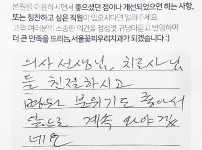 본원을 이용하시면서 좋으셨던 점이나 개선되었으면 하는 사항,
또는 칭찬하고 싶은 직원이 있으시다면 알려주세요.
고객 여러분의 소중한 의견을 경청해 귀담아듣고 반영하여
더 큰 만족을 드리는, 서울꿈피우리치과가 되겠습니다 :)
의사 선생님, 치료사님
들 친절하시고
병원 분위기도 좋아서
앞으로 계속 와야겠
네요